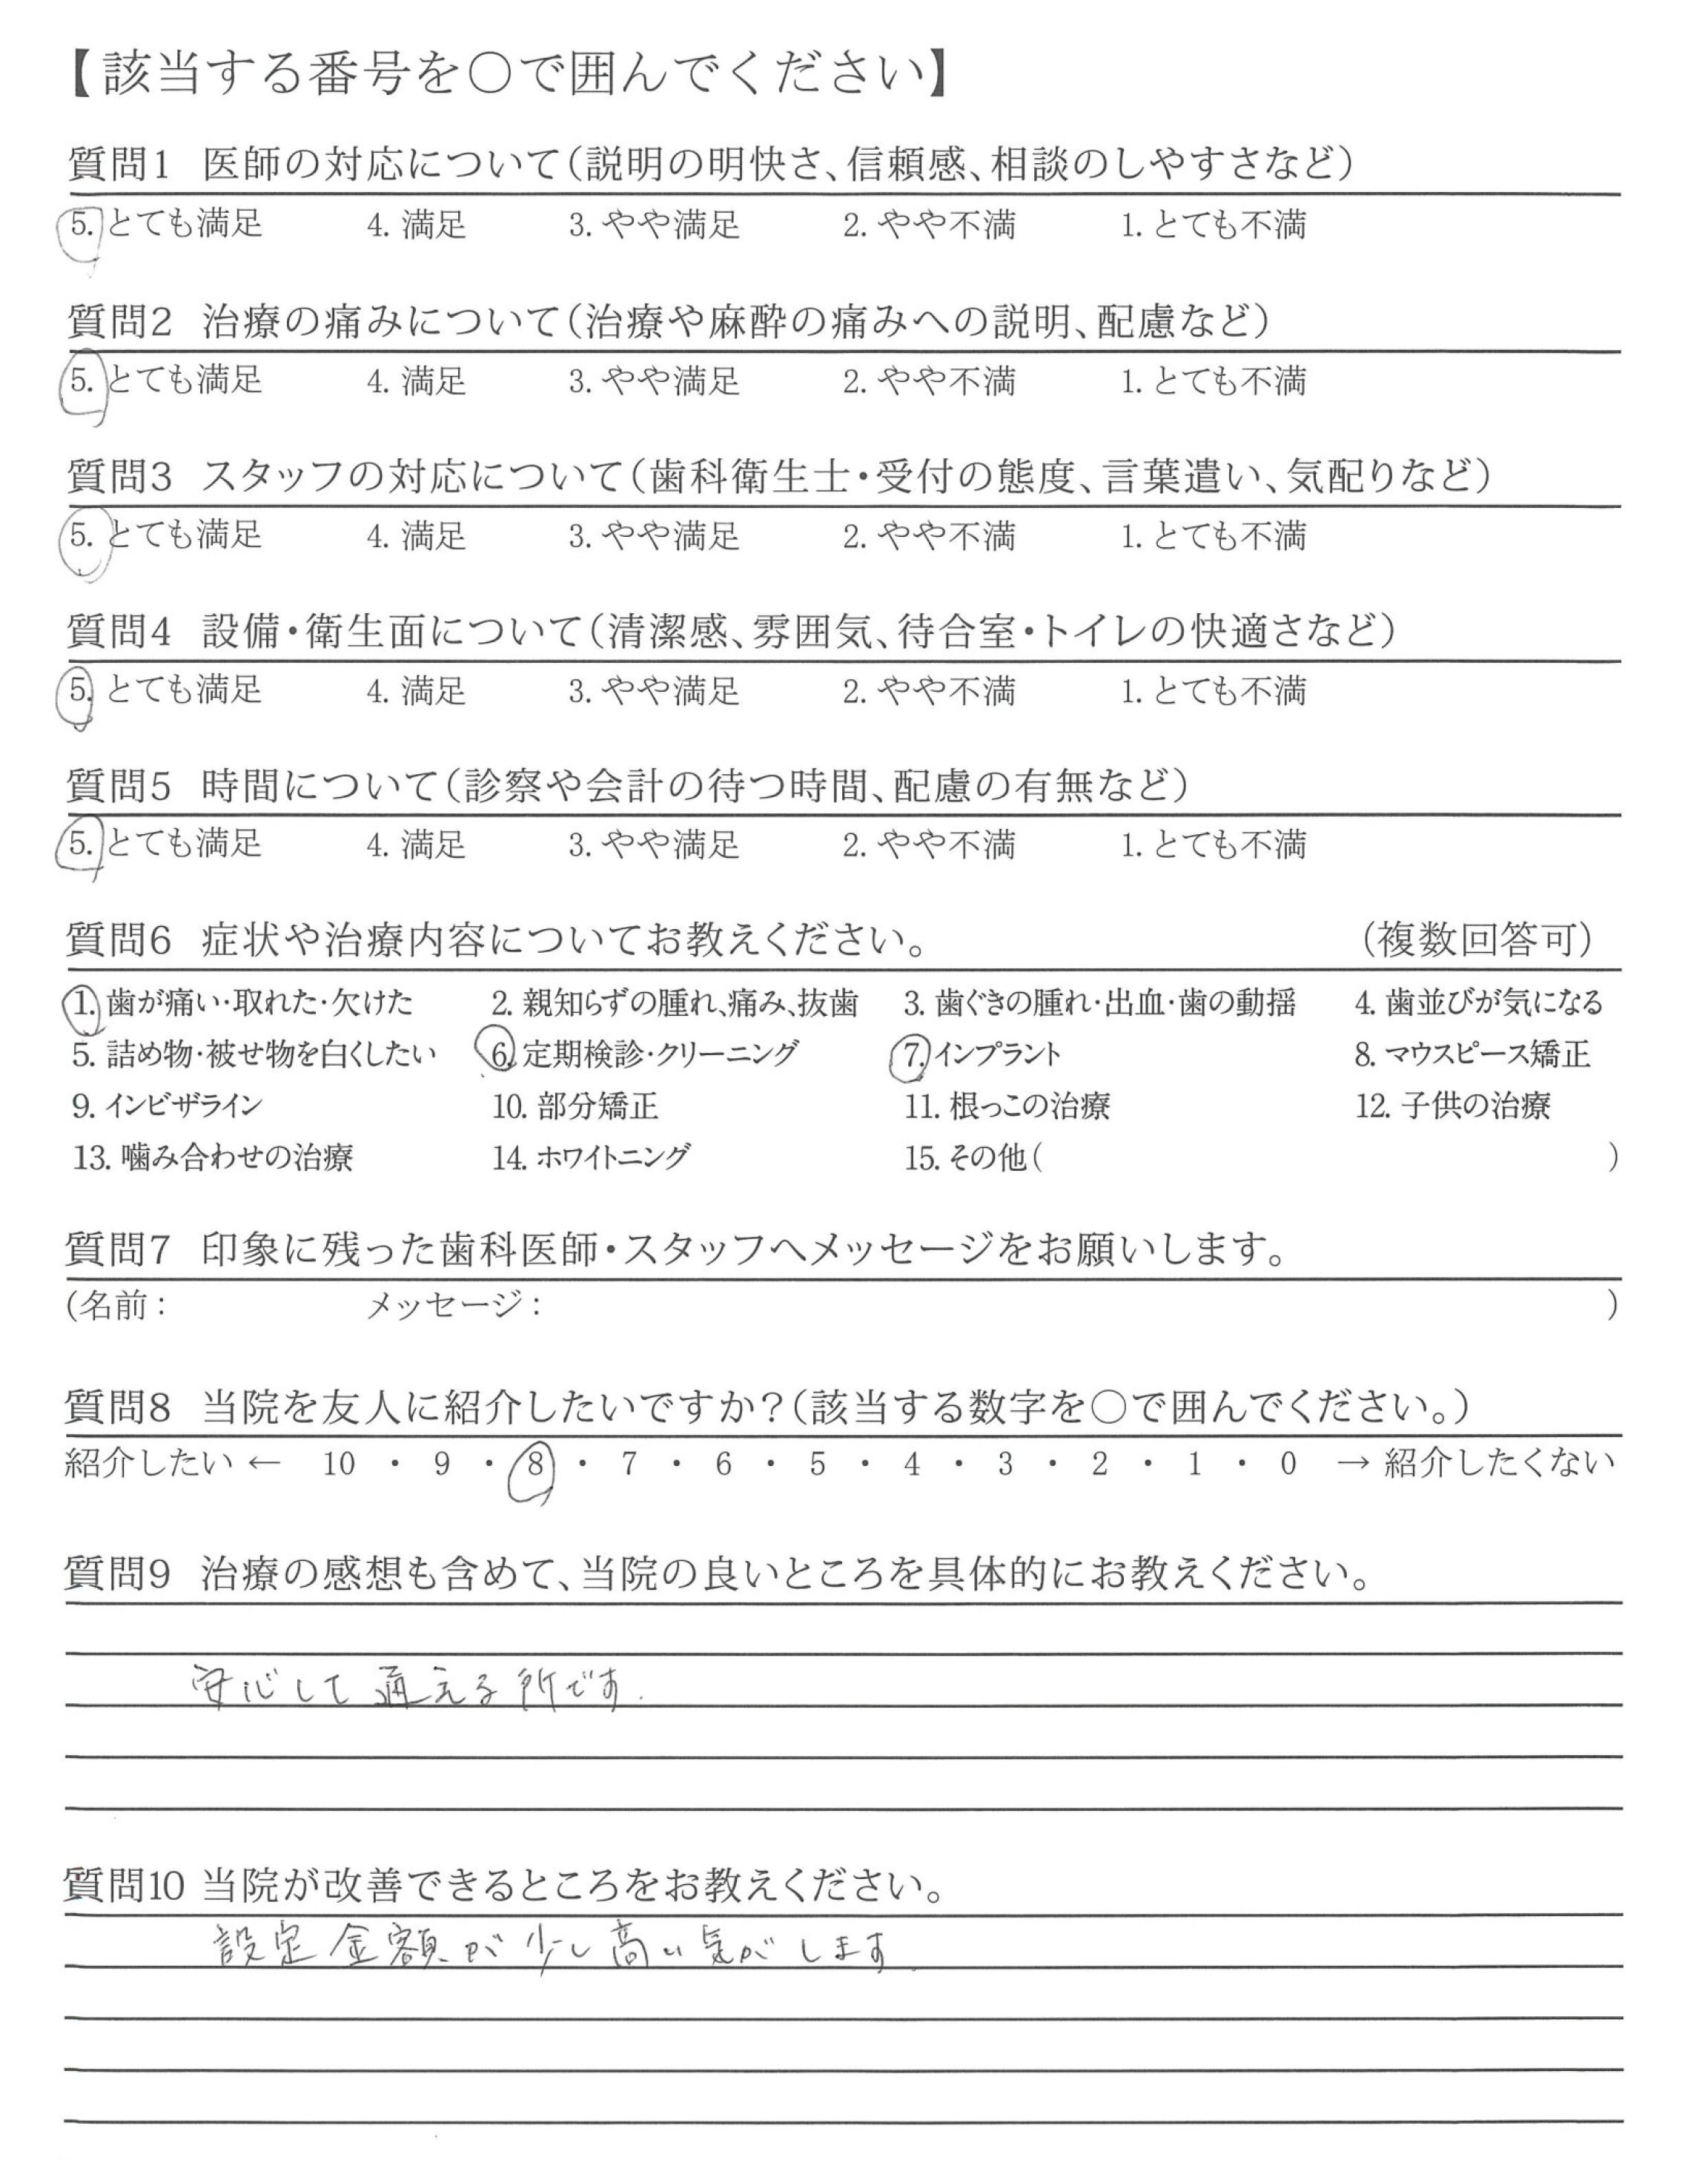 【該当する番号を○で囲んでください】
質問1 医師の対応について(説明の明快さ、信頼感、相談のしやすさなど)
5. とても満足 4. 満足 3. やや満足 2. やや不満 1. とても不満
質問2 治療の痛みについて(治療や麻酔の痛みへの説明、配慮など)
5. とても満足 4. 満足 3. やや満足 2. やや不満 1. とても不満
質問3 スタッフの対応について(歯科衛生士・受付の態度、言葉遣い、気配りなど)
5. とても満足 4. 満足 3. やや満足 2. やや不満 1. とても不満
質問4 設備・衛生面について(清潔感、雰囲気、待合室・トイレの快適さなど)
5. とても満足 4. 満足 3. やや満足 2. やや不満 1. とても不満
質問5 時間について(診察や会計の待つ時間、配慮の有無など)
5. とても満足 4. 満足 3. やや満足 2. やや不満 1. とても不満
質問6 症状や治療内容についてお教えください。 (複数回答可)
1. 歯が痛い・取れた・欠けた 2. 親知らずの腫れ、痛み、抜歯 3. 歯ぐきの腫れ・出血・歯の動揺 4. 歯並びが気になる
5. 詰め物・被せ物を白くしたい 6. 定期検診・クリーニング 7. インプラント 8. マウスピース矯正
9. インビザライン 10. 部分矯正 11. 根っこの治療 12. 子供の治療
13. 噛み合わせの治療 14. ホワイトニング 15. その他( )
質問7 印象に残った歯科医師・スタッフへメッセージをお願いします。
(名前: メッセージ: )
質問8 当院を友人に紹介したいですか?(該当する数字を○で囲んでください。)
紹介したい ← 10 ・ 9 ・ 8 ・ 7 ・ 6 ・ 5 ・ 4 ・ 3 ・ 2 ・ 1 ・ 0 → 紹介したくない
質問9 治療の感想も含めて、当院の良いところを具体的にお教えください。
安心して通える所です.
質問10 当院が改善できるところをお教えください。
設定金額が少し高い気がします.